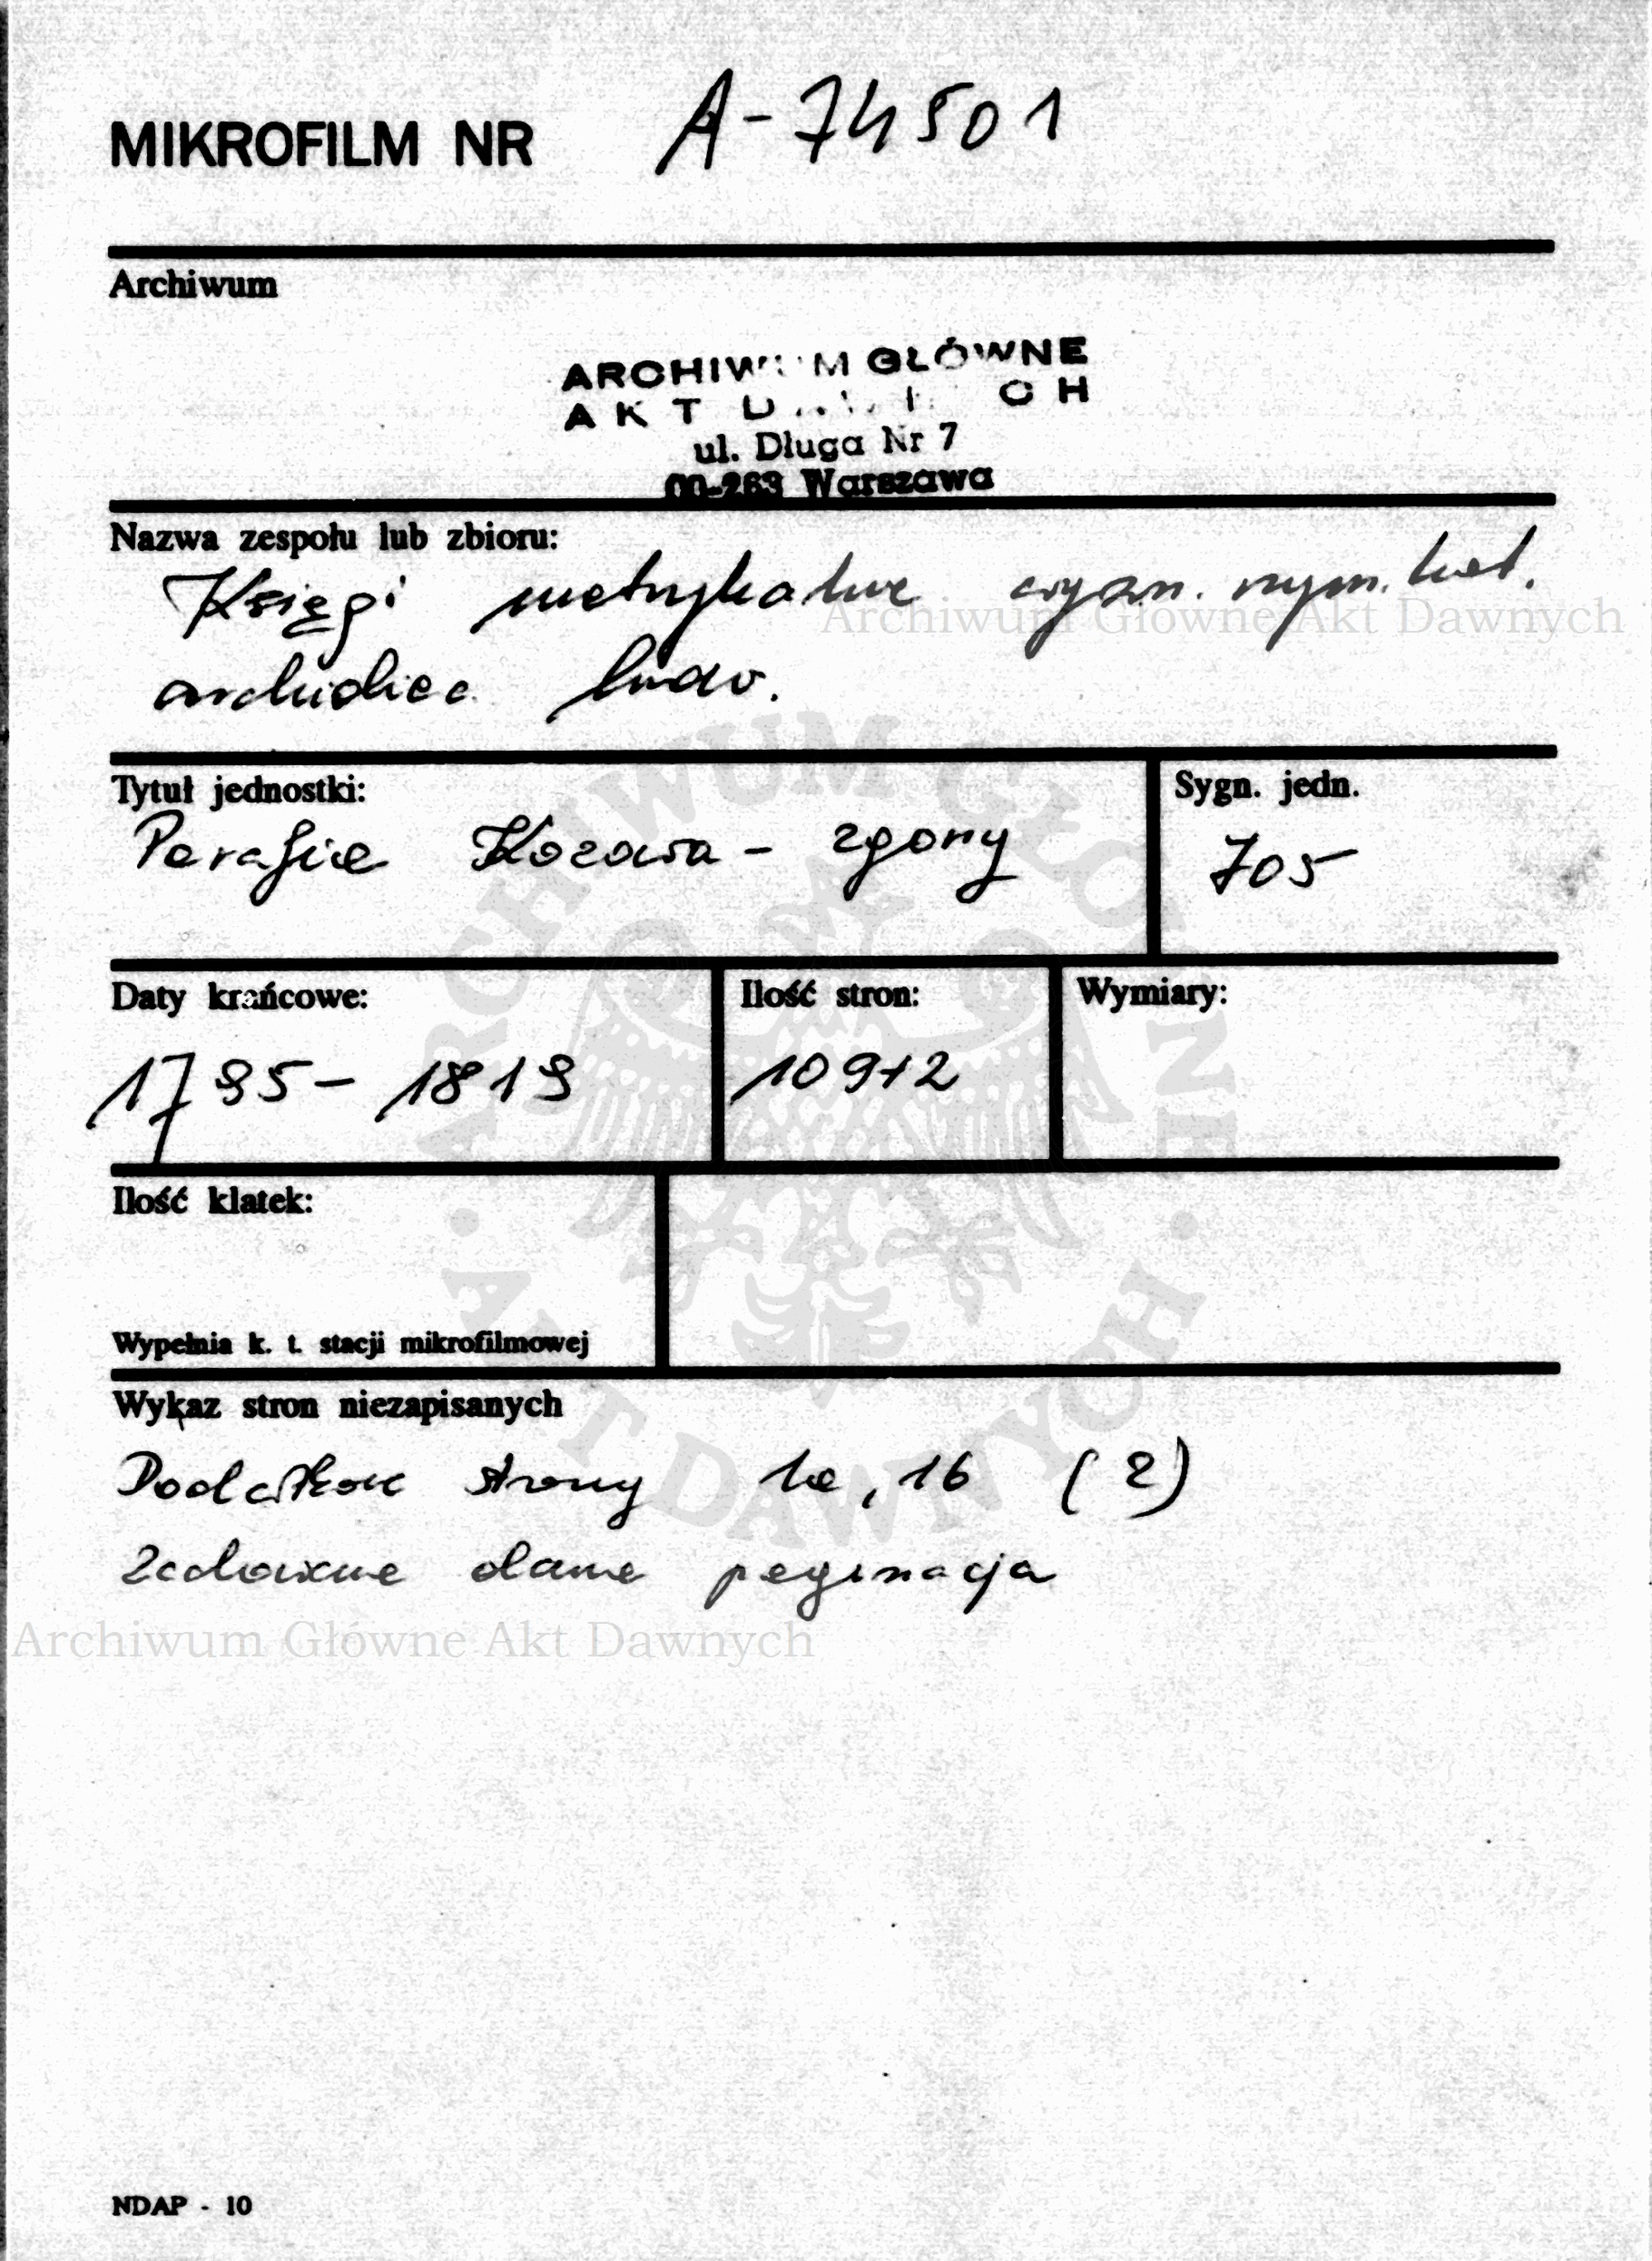 MIKROFILM NR A-74501
Archiwum
ARCHIWUM GŁÓWNE
AKT DAWNYCH
ul. Długa Nr 7
00-263 Warszawa
Nazwa zespołu lub zbioru:
Księgi metrykalne wyzn. rzym. kat.
Archiwum Główne Akt Dawnych
archidiec. lwow.
Tytuł jednostki:
Parafia Kozowa - zgony
Sygn. jedn.
705
Daty krańcowe:
1795 - 1819
Ilość stron:
109+2
Wymiary:
Ilość klatek:
Wypełnia k. t. stacji mikrofilmowej
Wykaz stron niezapisanych
Dodatkowe strony 1a, 1b (2)
Zachowane dawne paginacja
Archiwum Główne Akt Dawnych
ARCHIWUM GŁÓWNE · AKT DAWNYCH ·
NDAP - 10